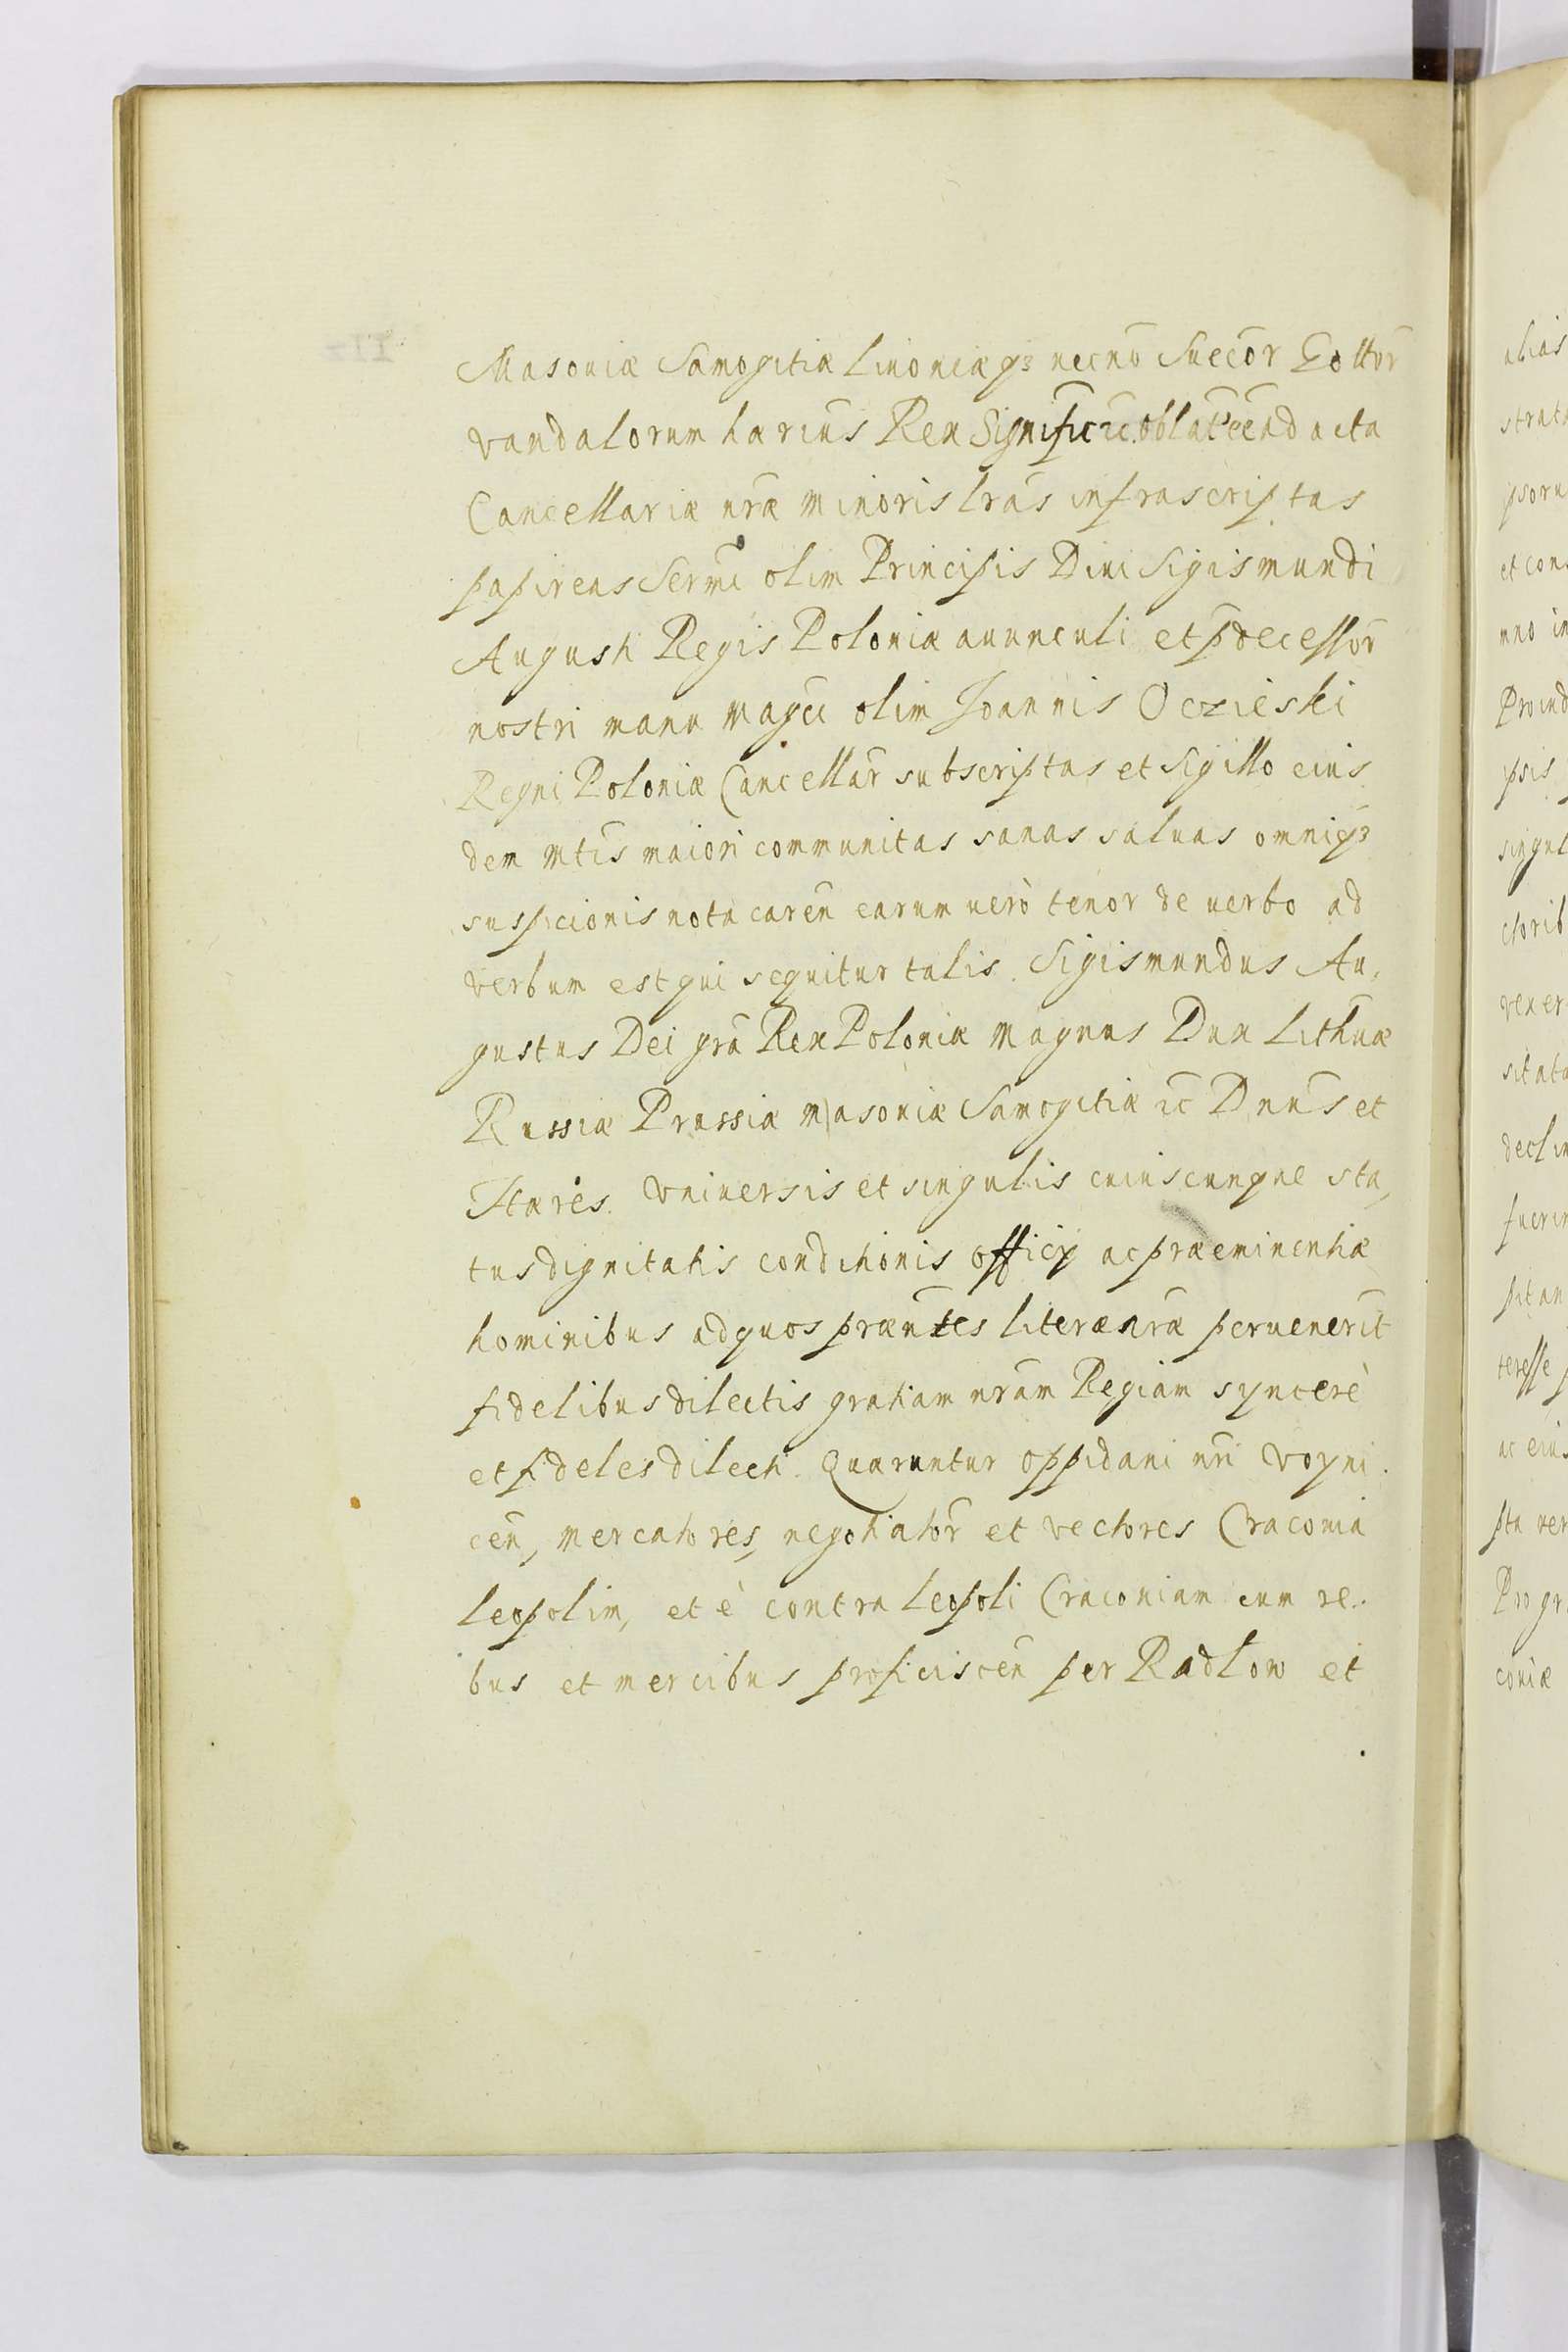 Masouiæ Samogitiæ Liuoniæq₃ necnō Suecor̄ Gottor̄
Vandalorum hæriūs Rex Significī ꝛc. Oblatas eē ad acta
Cancellariæ nr̄æ Minoris lrās infrascriptas
papireas Sermi olim Principis Diui Sigismundi
Augusti Regis Poloniæ auunculi et p̄decessor̄
nostri manu Magci olim Joannis Oczieski
Regni Poloniæ Cancellar̄ subscriptas et sigillo eius
dem Mtīs maiori communitas sanas saluas omniq₃
suspicionis nota caren̄ earum uerò tenor de uerbo ad
verbum est qui sequitur talis. Sigismundus Au,
gustus Dei grā Rex Poloniæ Magnus Dux Lithuæ
Russiæ Prussiæ Masouiæ Samogitiæ ꝛc Dnūs et
Hæres. Vniuersis et singulis cuiuscunque sta,
tus dignitatis conditionis officÿ ac præeminentiæ
hominibus ad quos præsn̄tes literæ nr̄æ peruenerīt
fidelibus dilectis gratiam nrām Regiam syncerè
et fideles dilecti. Quæruntur oppidani nrī Voyni.
cen̄, Mercatores, negotiator̄ et vectores Cracouia
Leopolim, et è contra Leopoli Cracouiam cum re.
bus et mercibus proficiscen̄ per Radłow et